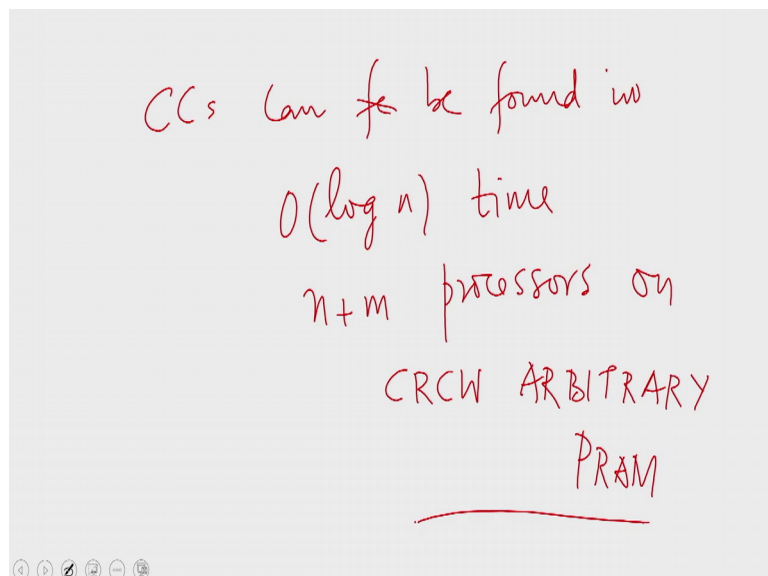 CCs can be found in
O(log n) time
n+m processors on
CRCW ARBITRARY
PRAM